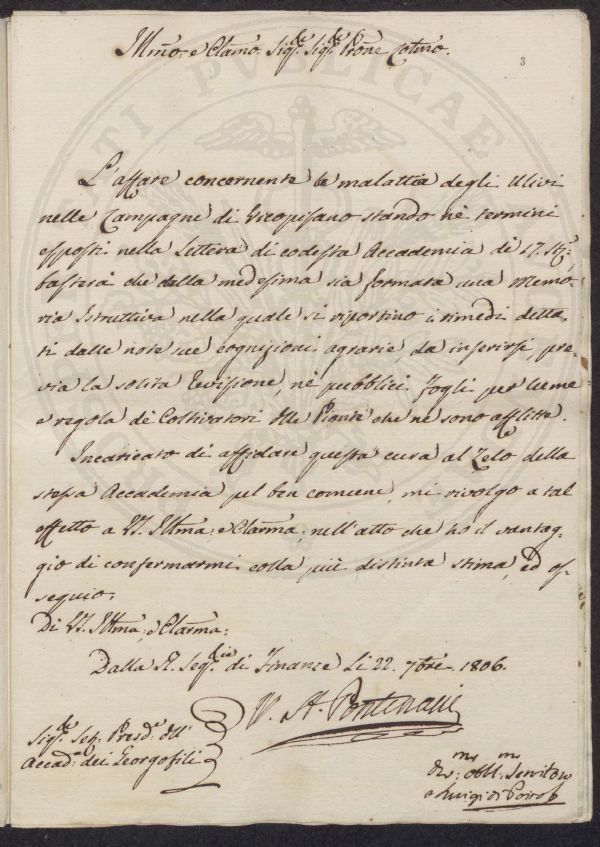 Illmo: e Clamo: Sigre: Sigre: Prone Colmo.
3
L'affare concernente la malattia degli Ulivi
nelle Campagne di Vicopisano stando nè termini
esposti nella Lettera di codesta Accademia de 17. Stt:
basterà che dalla medesima sia formata una Memo-
ria Istruttiva nella quale si riportino i rimedi detta-
ti dalle note sue cognizioni agrarie, da inserirsi, pre-
via la solita Revisione, nè pubblici Fogli per lume
e regola dè Coltivatori delle Piante che ne sono afflitte.
Incaricato di affidare questa cura al Zelo della
stessa Accademia pel ben comune, mi rivolgo a tal
effetto a VS. Illma: e Clarma: nell'atto che ho il vantag-
gio di confermarmi colla più distinta stima, ed os-
sequio.
Di VS. Illma: e Clarma:
Dalla R. Segria: di Finanze Li 22. 7bre: 1806.
Sigre: Presde: dell'
Accada: dei Georgofili
V. A. Pontenani
Devmo: obblmo: Servitore